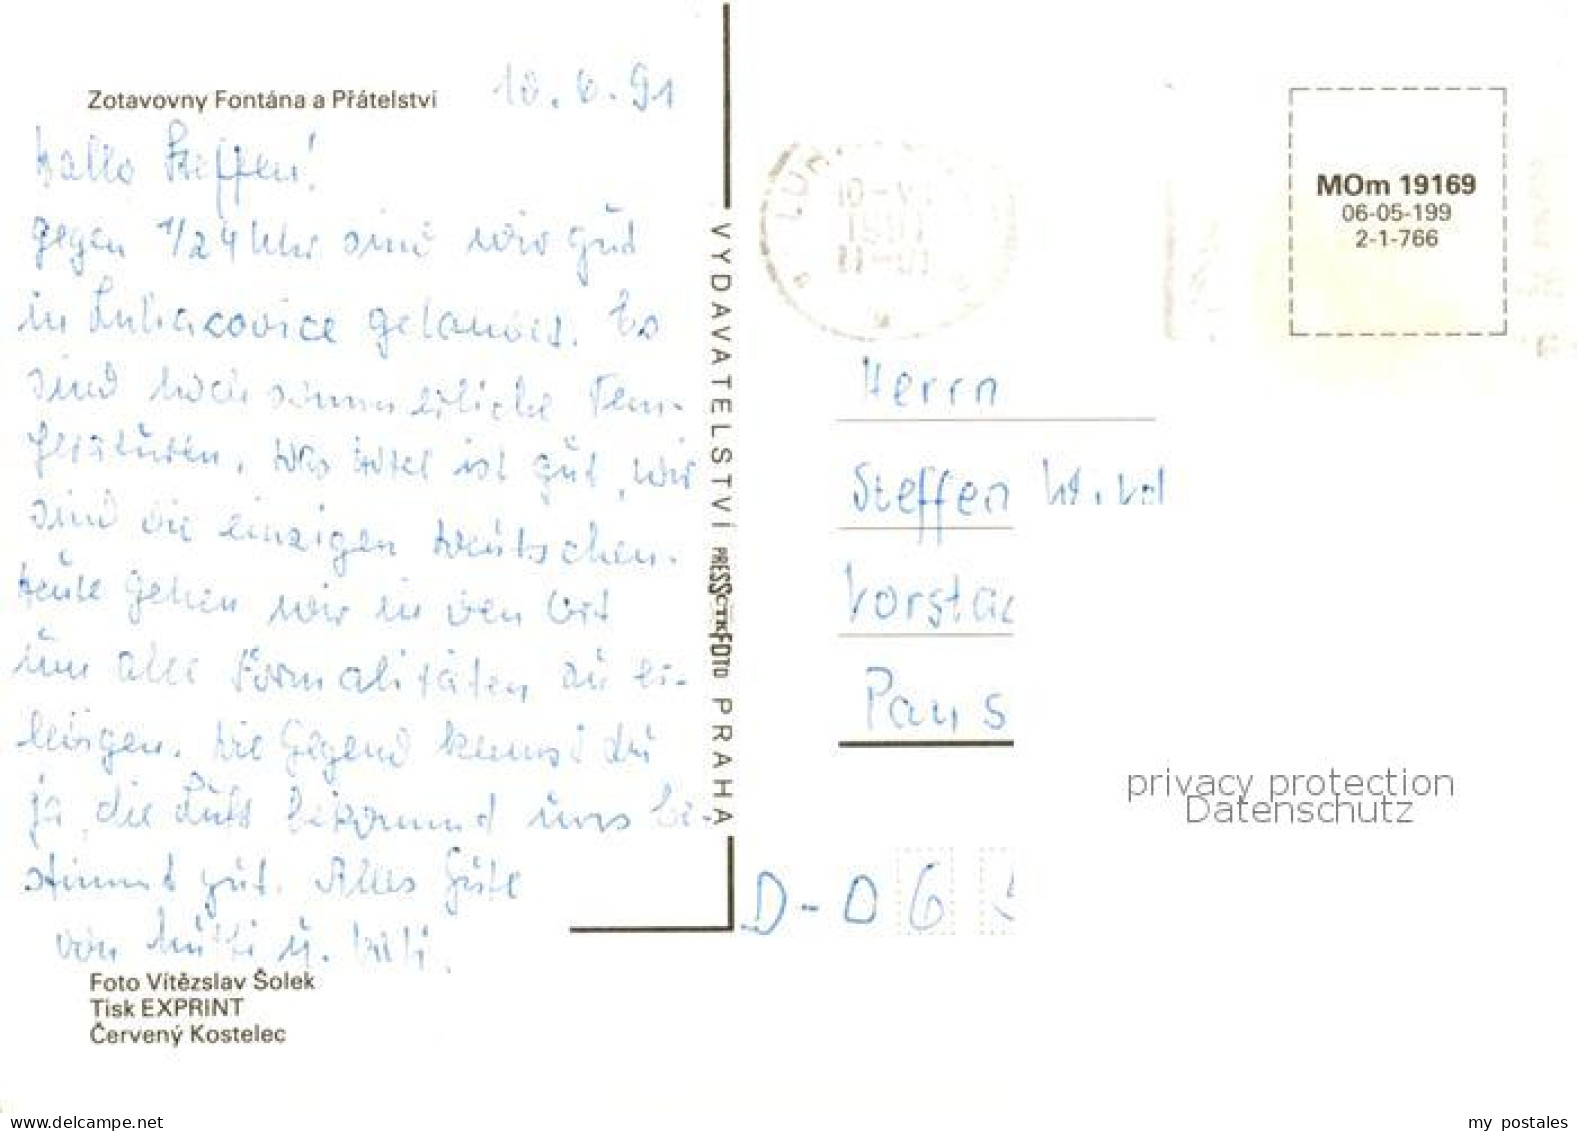 Zotavovny Fontána a Přátelství
10.6.91
Hallo Steffen!
gegen 1/2 4 Uhr sind wir gut
in Luhacovice gelandet. Es
sind noch sommerliche Tem-
peraturen. Das Hotel ist gut, wir
sind die einzigen Deutschen.
Heute gehen wir in den Ort
um alle Formalitäten zu er-
ledigen. Die Gegend kennst du
ja, die Luft bekommt uns be-
stimmt gut. Alles Gute
von Mutti u. Vati.
Foto Vítězslav Šolek
Tisk EXPRINT
Červený Kostelec
VYDAVATELSTVÍ PRESSFOTO PRAHA
10-VI
1991
MOm 19169
06-05-199
2-1-766
Herrn
Steffen
Vorstad
Paus
D-O 6
privacy protection
Datenschutz
www.delcampe.net
my_postales